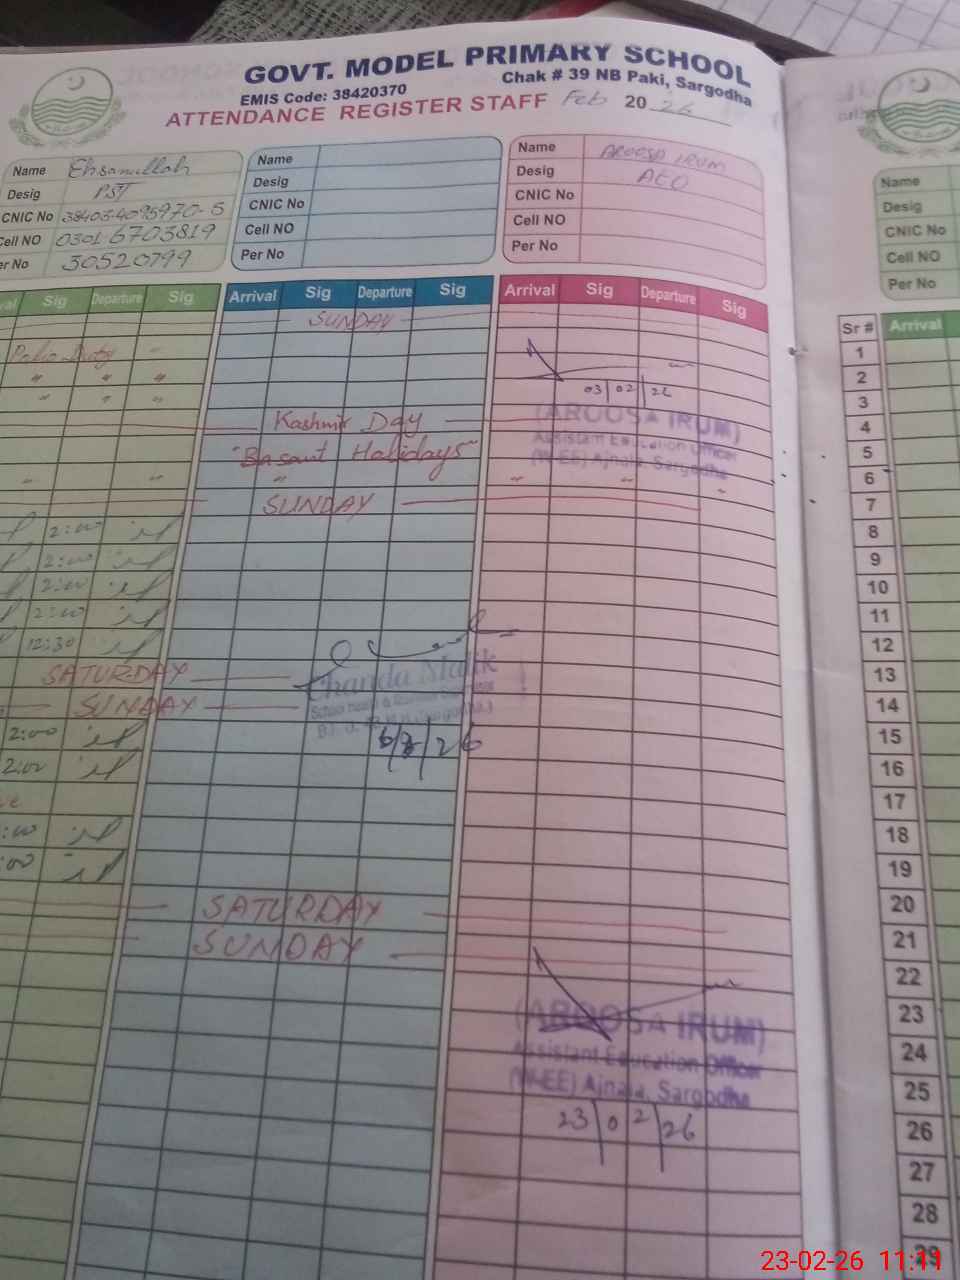 GOVT. MODEL PRIMARY SCHOOL
Chak # 39 NB Paki, Sargodha
EMIS Code: 38420370
ATTENDANCE REGISTER STAFF Feb 2026
Name Ehsanullah
Desig PST
CNIC No 38403-4095970-5
Cell NO 0301-6703819
er No 30520799
Name
Desig
CNIC No
Cell NO
Per No
Name AROOSA IRUM
Desig AEO
CNIC No
Cell NO
Per No
Name
Desig
CNIC No
Cell NO
Per No
val Sig Departure Sig
Arrival Sig Departure Sig
Arrival Sig Departure Sig
Sr # Arrival
SUNDAY
Polio Duty
03/02/26
(AROOSA IRUM)
Assistant Education Officer
(W-EE) Ajnala, Sargodha
Kashmir Day
"Basant Holidays"
SUNDAY
2:00
2:00
2:00
2:00
12:30
SATURDAY
SUNDAY
Chanda Malik
2:00
2:00
:00
:00
SATURDAY
SUNDAY
(AROOSA IRUM)
Assistant Education Officer
(W-EE) Ajnala, Sargodha
23/02/26
1
2
3
4
5
6
7
8
9
10
11
12
13
14
15
16
17
18
19
20
21
22
23
24
25
26
27
28
29
23-02-26 11:11